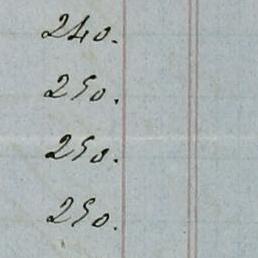 240.
250.
250.
250.